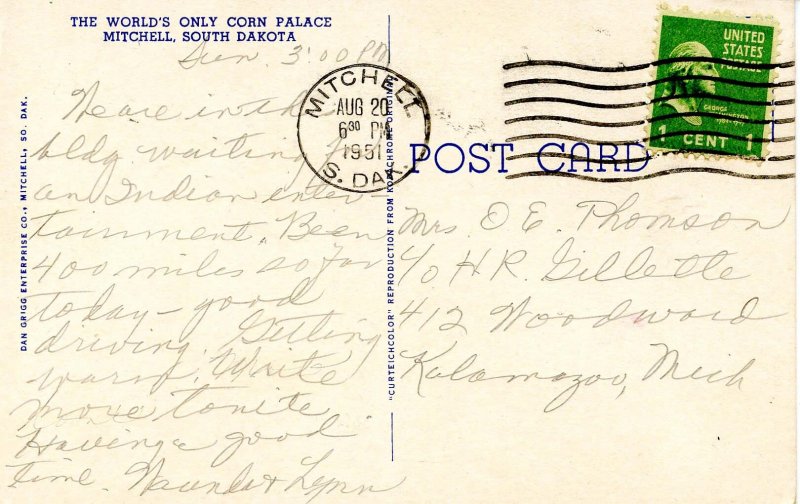 THE WORLD'S ONLY CORN PALACE
MITCHELL, SOUTH DAKOTA
Sun. 3:00 PM
We are in the
bldg waiting for
an Indian enter-
tainment. Been
400 miles so far
today - good
driving. Getting
warm. Write
more tonite.
Having a good
time. & Lynn
DAN GRIGG ENTERPRISE CO., MITCHELL, SO. DAK.
"CURTEICHCOLOR" REPRODUCTION FROM KODACHROME ORIGINAL
MITCHELL
AUG 20
6 30 PM
1951
S. DAK.
UNITED
STATES
POSTAGE
GEORGE
WASHINGTON
1 CENT 1
POST CARD
Mrs. O E. Thomson
c/o H R. Gillette
412 Woodward
Kalamazoo, Mich